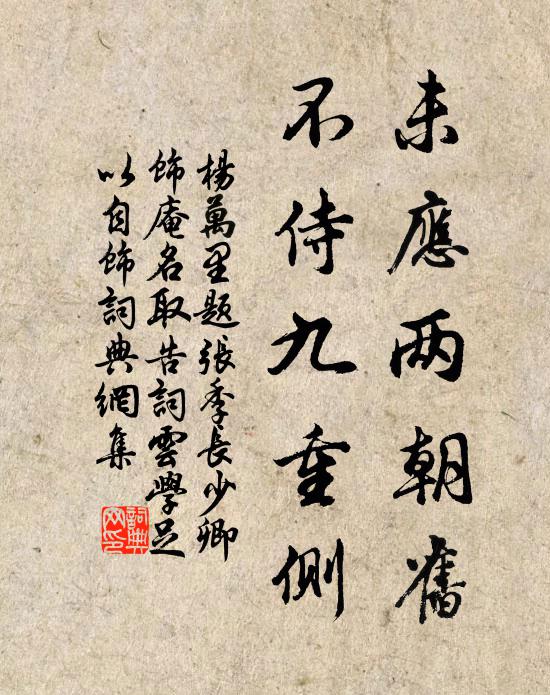 未應两朝舊
不侍九重側
楊萬里題張季長少卿
飾庵名取告詞雲學足
以自飾詞典網集
詞典
网印